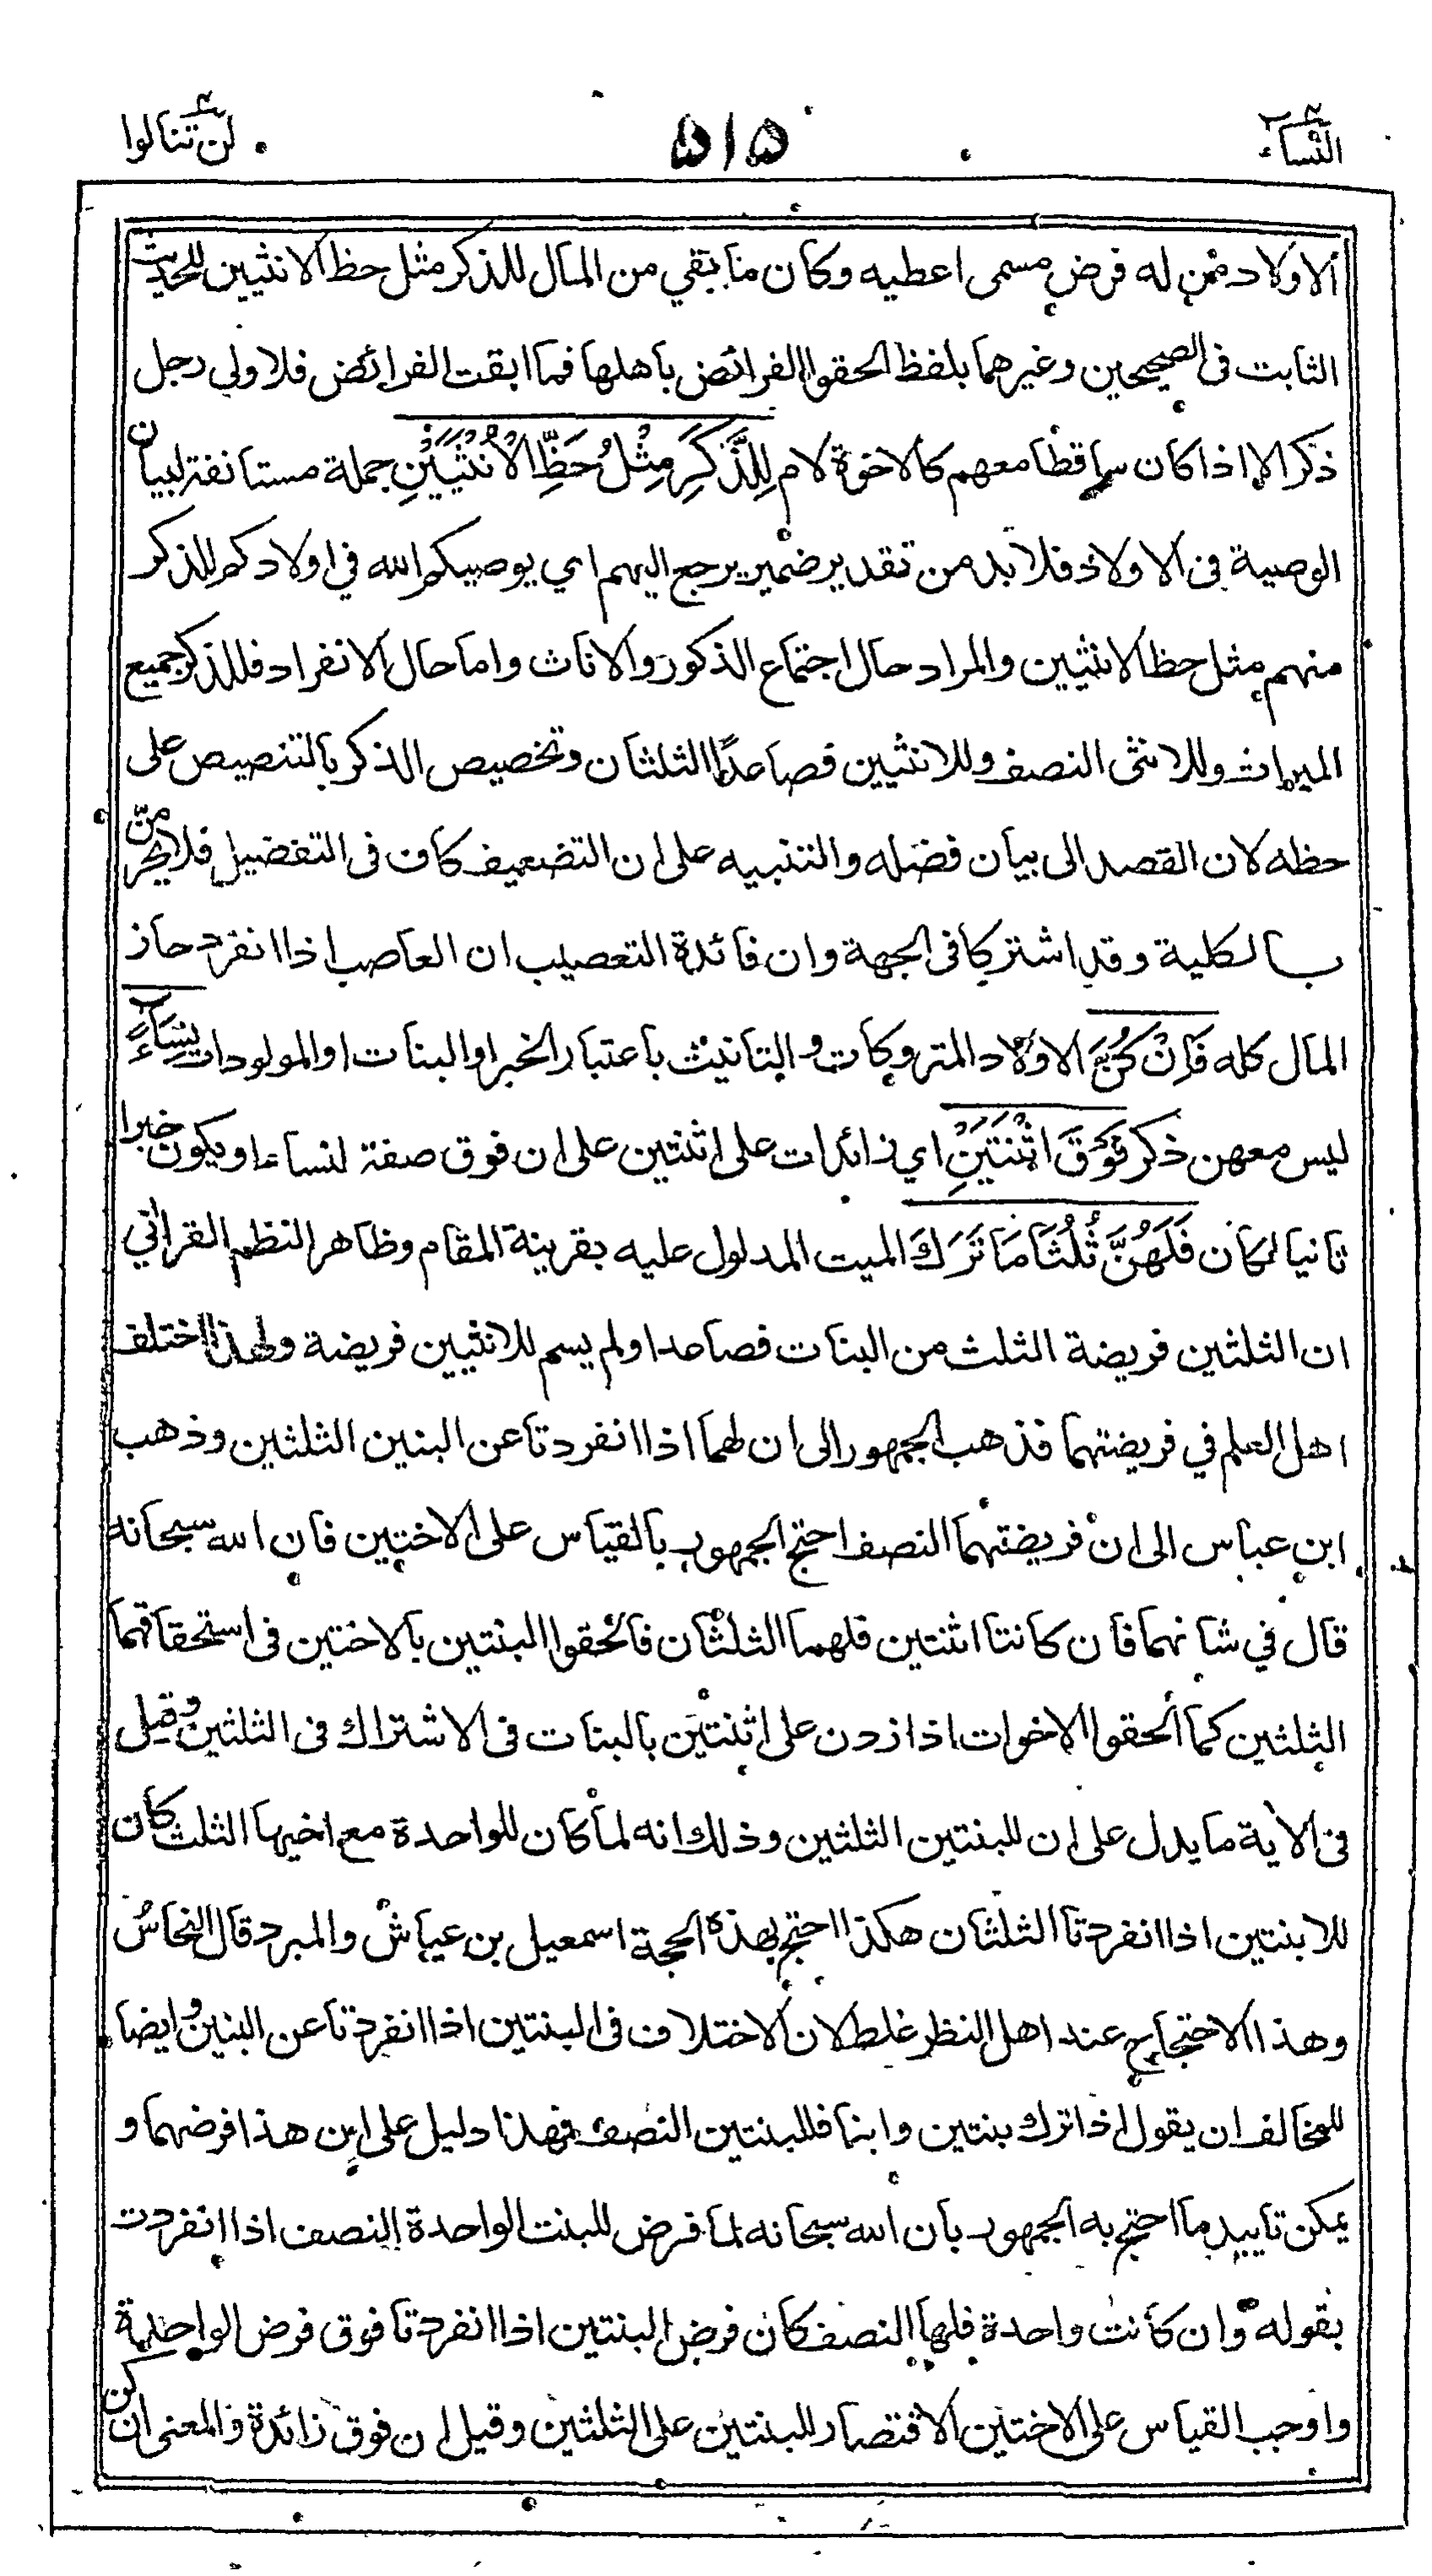 النساء
۵۱۵
لن تنالوا
الاولاد ممن له فرض مسمى اعطيه وكان ما بقي من المال للذكر مثل حظ الانثيين للحديث
الثابت فى الصحيحين وغيرهما بلفظ الحقوا الفرائض باهلها فما ابقت الفرائض فلاولي رجل
ذكر الا اذا كان ساقطا معهم كالاخوة لام لِلذَّكَرِ مِثْلُ حَظِّ الْاُنْثَيَيْنِ جملة مستانفة لبيان
الوصية فى الاولاد فلا بد من تقدير ضمير يرجع اليهم اي يوصيكم الله في اولادكم للذكر
منهم مثل حظ الانثيين والمراد حال اجتماع الذكور والاناث واما حال الانفراد فللذكر جميع
الميراث وللانثى النصف وللانثيين فصاعدًا الثلثان وتخصيص الذكر بالتنصيص على
حظه لان القصد الى بيان فضله والتنبيه على ان التضعيف كاف فى التفضيل فلا يحرمن
بالكلية وقد اشتركا فى الجهة وان فائدة التعصيب ان العاصب اذا انفرد حاز
المال كله فَاِنْ كُنَّ الاولاد المتروكات والتانيث باعتبار الخبر او البنات او المولودات نِسَآءً
ليس معهن ذكر فَوْقَ اثْنَتَيْنِ اي زائدات على اثنتين على ان فوق صفة لنساء او يكون خبرا
ثانيا لكان فَلَهُنَّ ثُلُثَا مَا تَرَكَ الميت المدلول عليه بقرينة المقام وظاهر النظم القراني
ان الثلثين فريضة الثلث من البنات فصاعدا ولم يسم للانثيين فريضة ولهذا اختلف
اهل العلم في فريضتهما فذهب الجمهور الى ان لهما اذا انفردتا عن البنين الثلثين وذهب
ابن عباس الى ان فريضتهما النصف احتج الجمهور بالقياس على الاختين فان الله سبحانه
قال في شانهما فان كانتا اثنتين فلهما الثلثان فالحقوا البنتين بالاختين فى استحقاقهما
الثلثين كما الحقوا الاخوات اذا زدن على اثنتين بالبنات فى الاشتراك فى الثلثين وقيل
فى الاية ما يدل على ان للبنتين الثلثين وذلك انه لما كان للواحدة مع اخيها الثلث كان
للابنتين اذا انفردتا الثلثان هكذا احتج بهذه الحجة اسمعيل بن عياش والمبرد قال النحاس
وهذا الاحتجاج عند اهل النظر غلط لان الاختلاف فى البنتين اذا انفردتا عن البنين وايضا
للمخالف ان يقول اذا ترك بنتين وابنا فللبنتين النصف فهذا دليل على ان هذا فرضهما و
يمكن تاييد ما احتج به الجمهور بان الله سبحانه لما فرض للبنت الواحدة النصف اذا انفردت
بقوله وان كانت واحدة فلها النصف كان فرض البنتين اذا انفردتا فوق فرض الواحدة
واوجب القياس على الاختين الاقتصار للبنتين على الثلثين وقيل ان فوق زائدة والمعنى ان كن